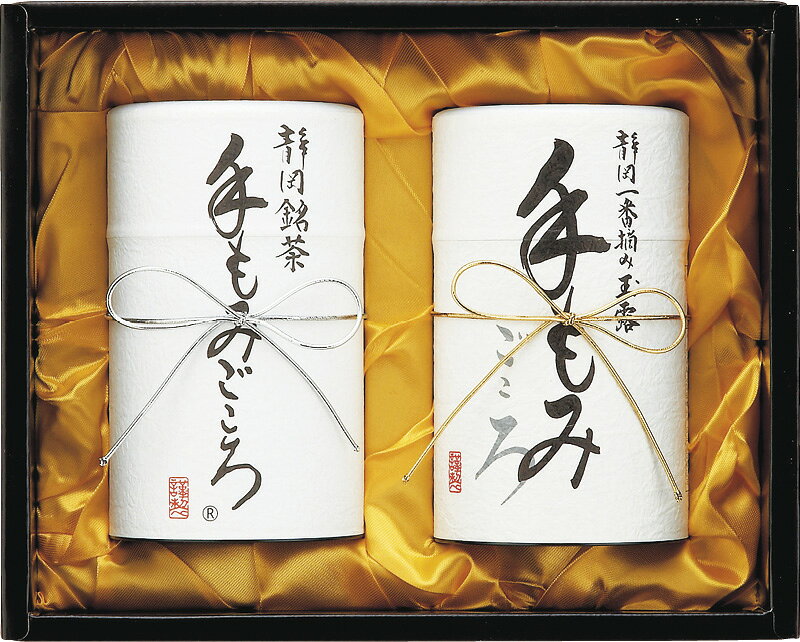 静岡銘茶
手もみごころ
®
謹製
静岡一番摘み玉露
手もみ
ごころ
謹製